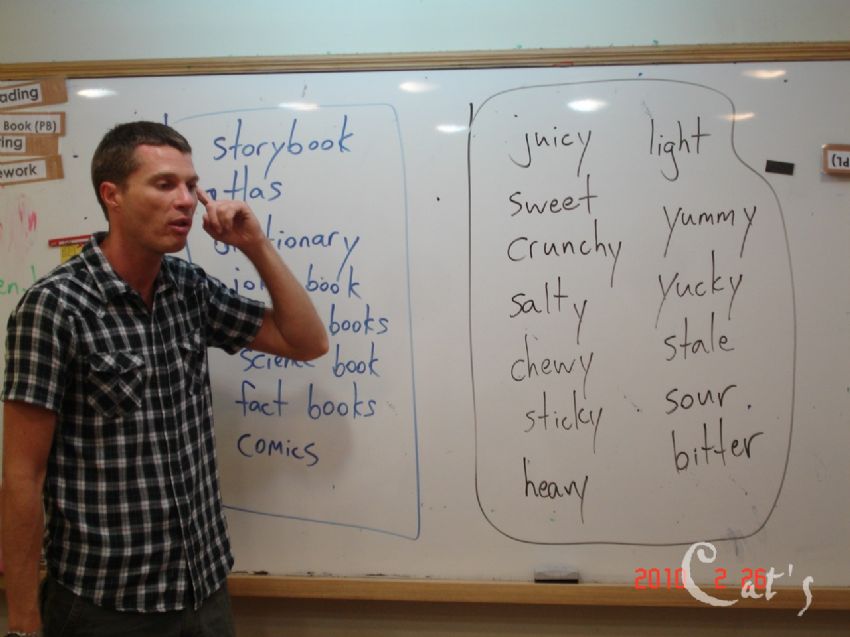 ading
Book (PB)
ring
work
storybook
atlas
dictionary
book
books
science book
fact books
comics
juicy
sweet
crunchy
salty
chewy
sticky
heavy
light
yummy
yucky
stale
sour.
bitter
2010 2 26
Cat's